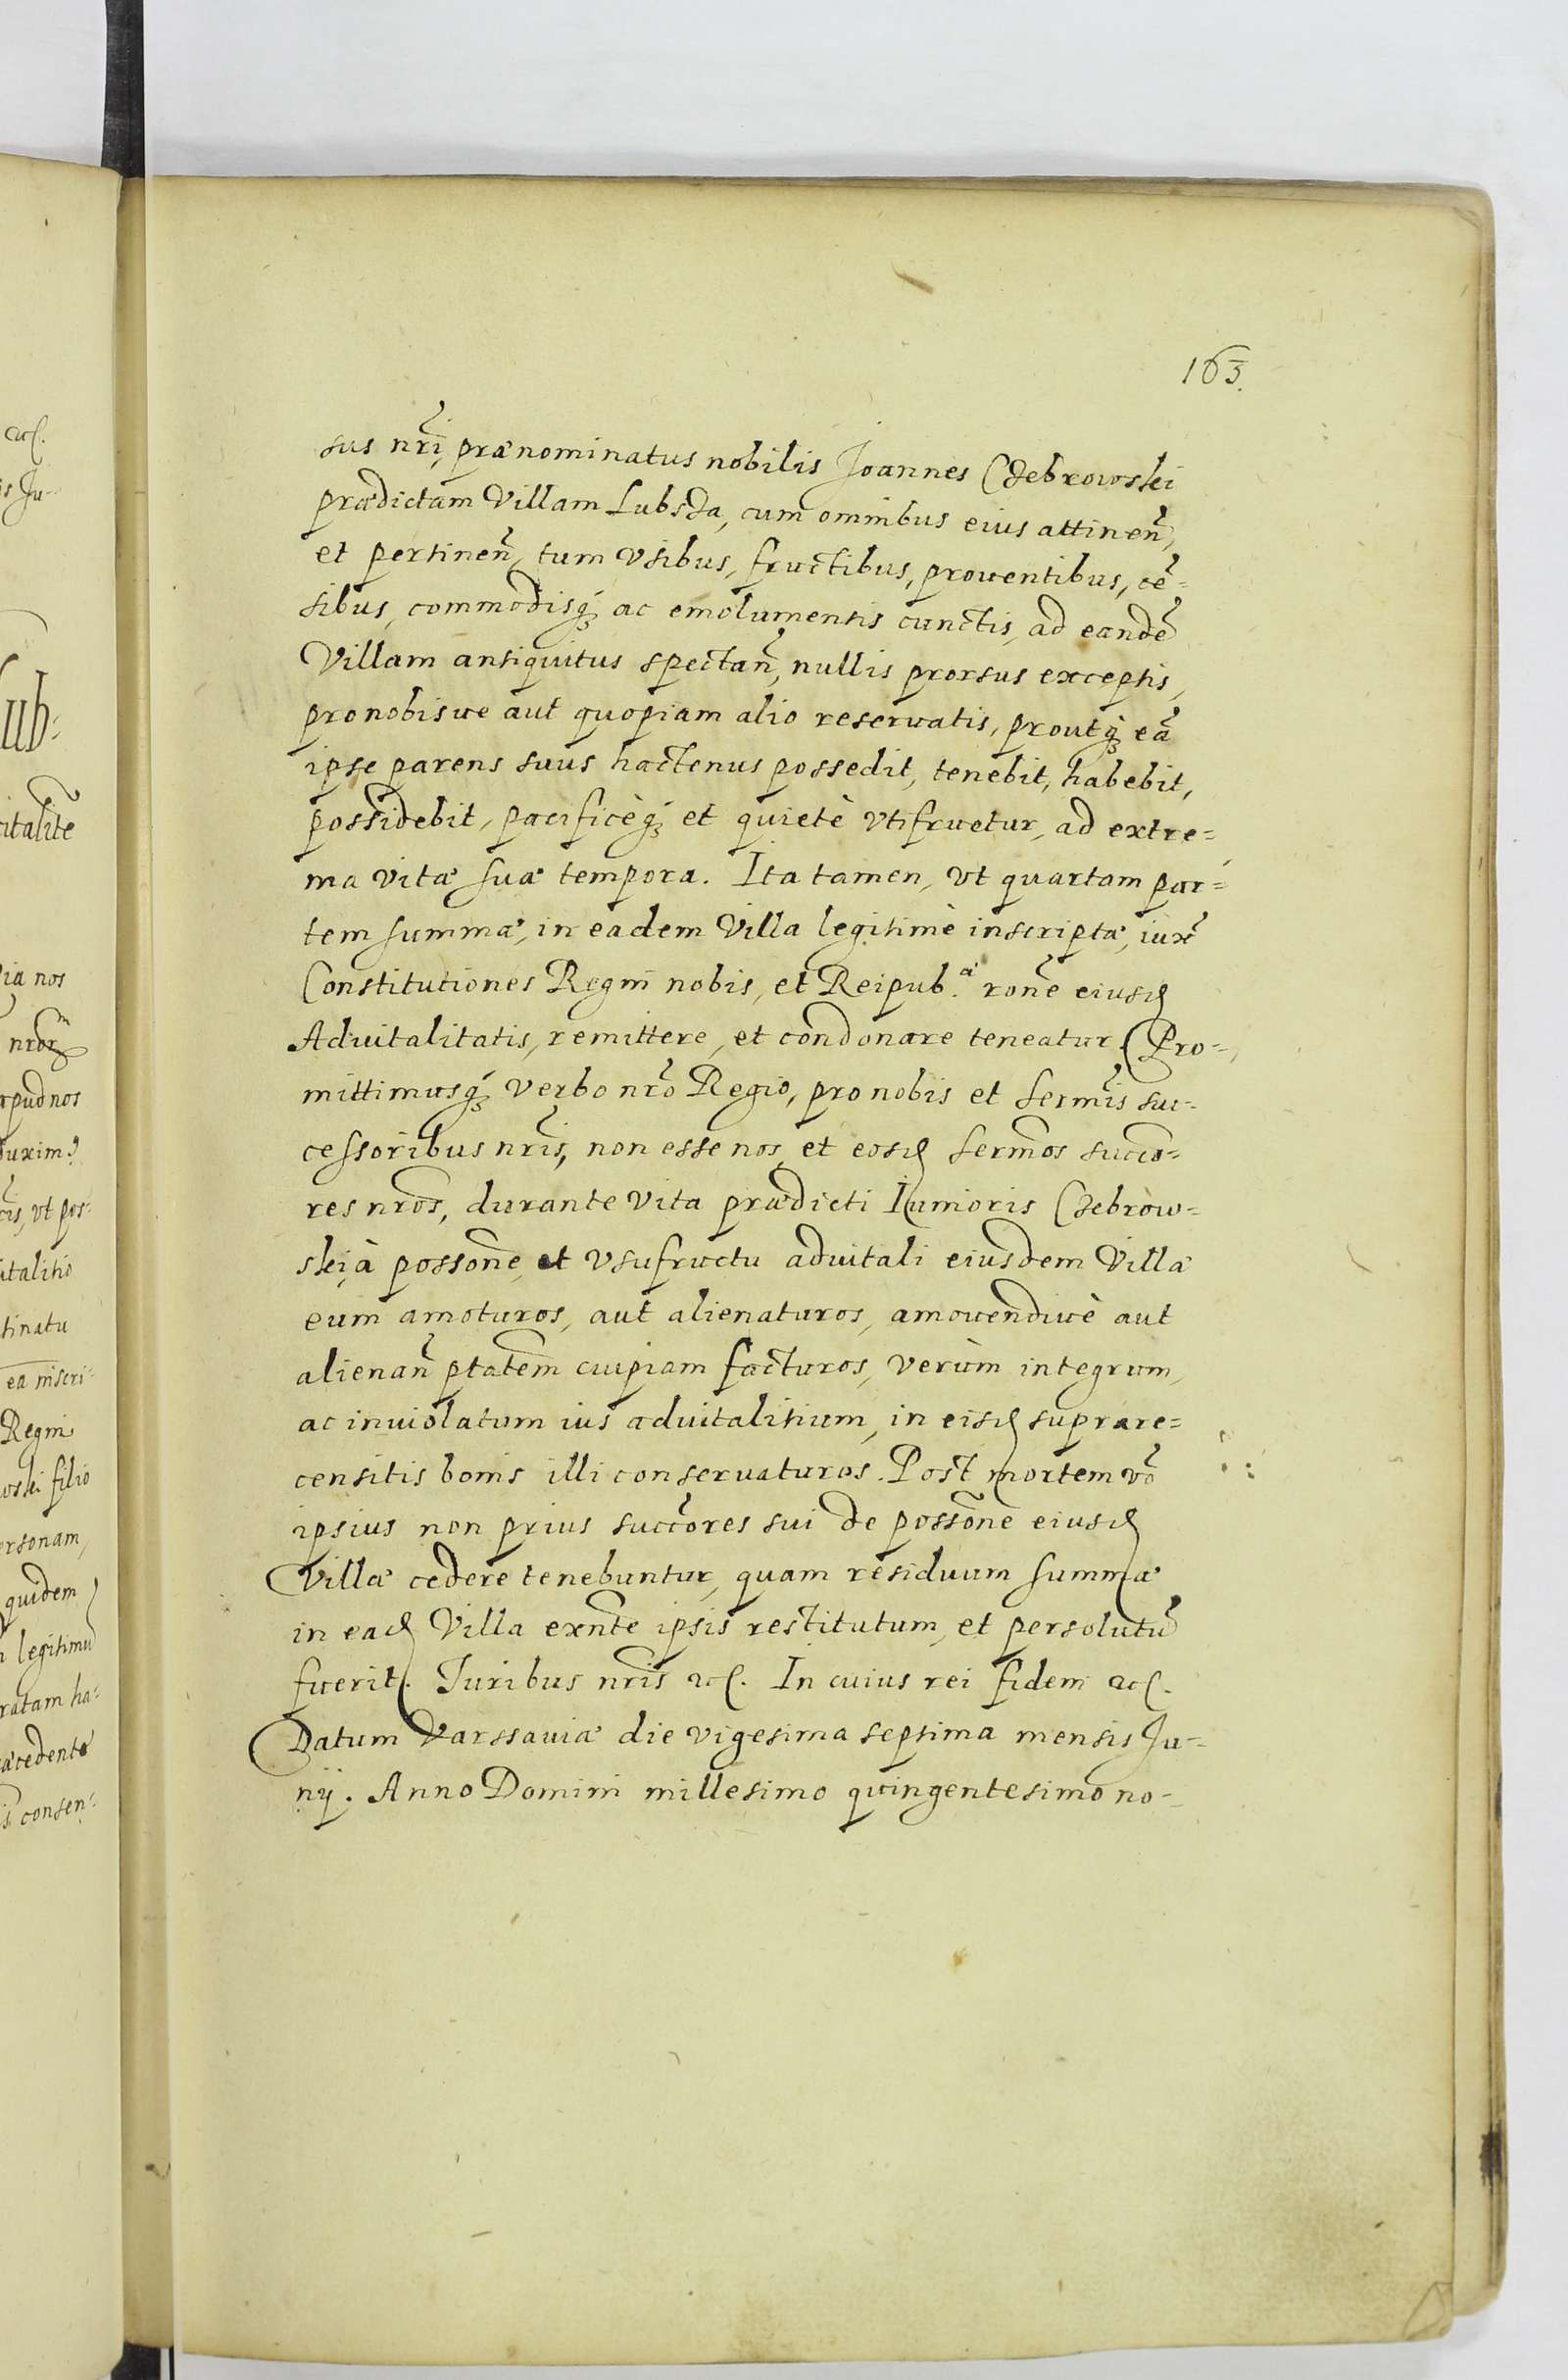 163.
sus nr̃i, prænominatus nobilis Joannes Czebrowski
prædictam Villam Lubsza, cum omnibus eius attinen̄,
et pertinen̄, tum vsibus, fructibus, prouentibus, cẽ-
sibus, commodisq́ꝫ ac emolumentis cunctis, ad eandẽ
Villam antiquitus spectan̄, nullis prorsus exceptis,
pro nobisue aut quopiam alio reseruatis, proutq́ꝫ eã
ipse parens suus hactenus possedit, tenebit, habebit,
possidebit, pacificèq́ꝫ et quietè vtifruetur, ad extre=
ma vitæ suæ tempora. Ita tamen, vt quartam par-
tem summæ, in eadem Villa legitimè inscriptæ, iux̃
Constitutiones Regni nobis, et Reipub.æ ron̄e eiusd
Aduitalitatis, remittere, et condonare teneatur. Pro-
mittimusq́ꝫ Verbo nr̃o Regio, pro nobis et serm̃is suc-
cessoribus nr̃is, non esse nos, et eosd serm̃os succo-
res nr̃os, durante vita prædicti Iunioris Czebrow-
ski, à posson̄e, et vsufructu aduitali eiusdem Villæ
eum amoturos, aut alienaturos, amouendiuè aut
alienan̄ ptãtem cuipiam facturos, verùm integrum,
ac inuiolatum ius aduitalitium, in eisd suprare=
censitis bonis illi conseruaturos. Post mortem võ
ipsius non prius succõres sui de possõne eiusd
Villæ cedere tenebuntur, quam residuum summæ
in ead Villa exñte ipsis restitutum, et persolutũ
fuerit. Juribus nr̃is ꝛc. In cuius rei fidem ꝛc.
Datum Varssauiæ die vigesima septima mensis Ju-
nij. Anno Domini millesimo quingentesimo no-
ꝛc.
is Ju-
Lub=
citalite
nos
nror̃
apud nos
duxim9
vt pos-
utalitio
tinatu
ea inscri-
Regni
oski filio
ersonam,
quidem
legitimũ
ratam ha-
æcedente
is consen-